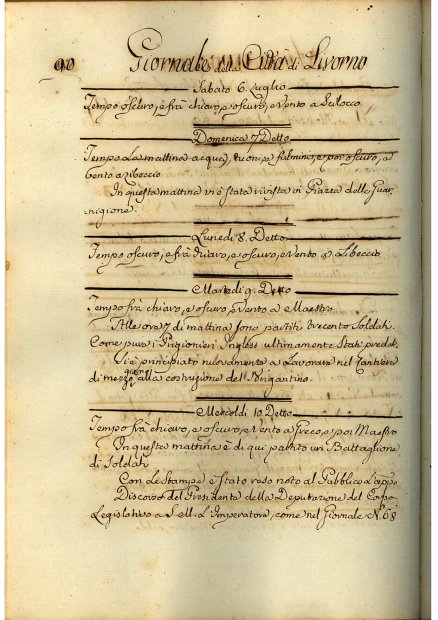 90 Giornale della Città di Livorno
Sabato 6 Luglio
Tempo oscuro, e frà chiaro, e oscuro, e vento a Scilocco
Domenica 7 Detto
Tempo La mattina acqua, tuoni, e fulmini, e poi oscuro, e
vento a Libeccio
In questa mattina vi è stata rivista in Piazza delle Guar
nigione.
Lunedì 8. Detto
Tempo oscuro, e frà chiaro, e oscuro, e vento a Libeccio
Martedì 9. Detto
Tempo frà chiaro, e oscuro, e vento a Maestro
Alle ore 7 di mattina sono partiti trecento Soldati.
Come pure i Prigionieri Inglesi ultimamente Stati predati.
Si è principiato nuovamente a Lavorare nel Cantiere
di mezzo giorno alla costruzione del Brigantino.
Mercoldì 10. Detto
Tempo frà chiaro, e oscuro, e vento a Greco, e poi Maestro
In questa mattina è di qui partito un Battaglione
di Soldati
Con Le Stampe è stato reso noto al Pubblico L'appo
Discorso del Presidente della Deputazione del Corpo
Legislativo a S. M. L'Imperatore, come nel Giornale N. 68